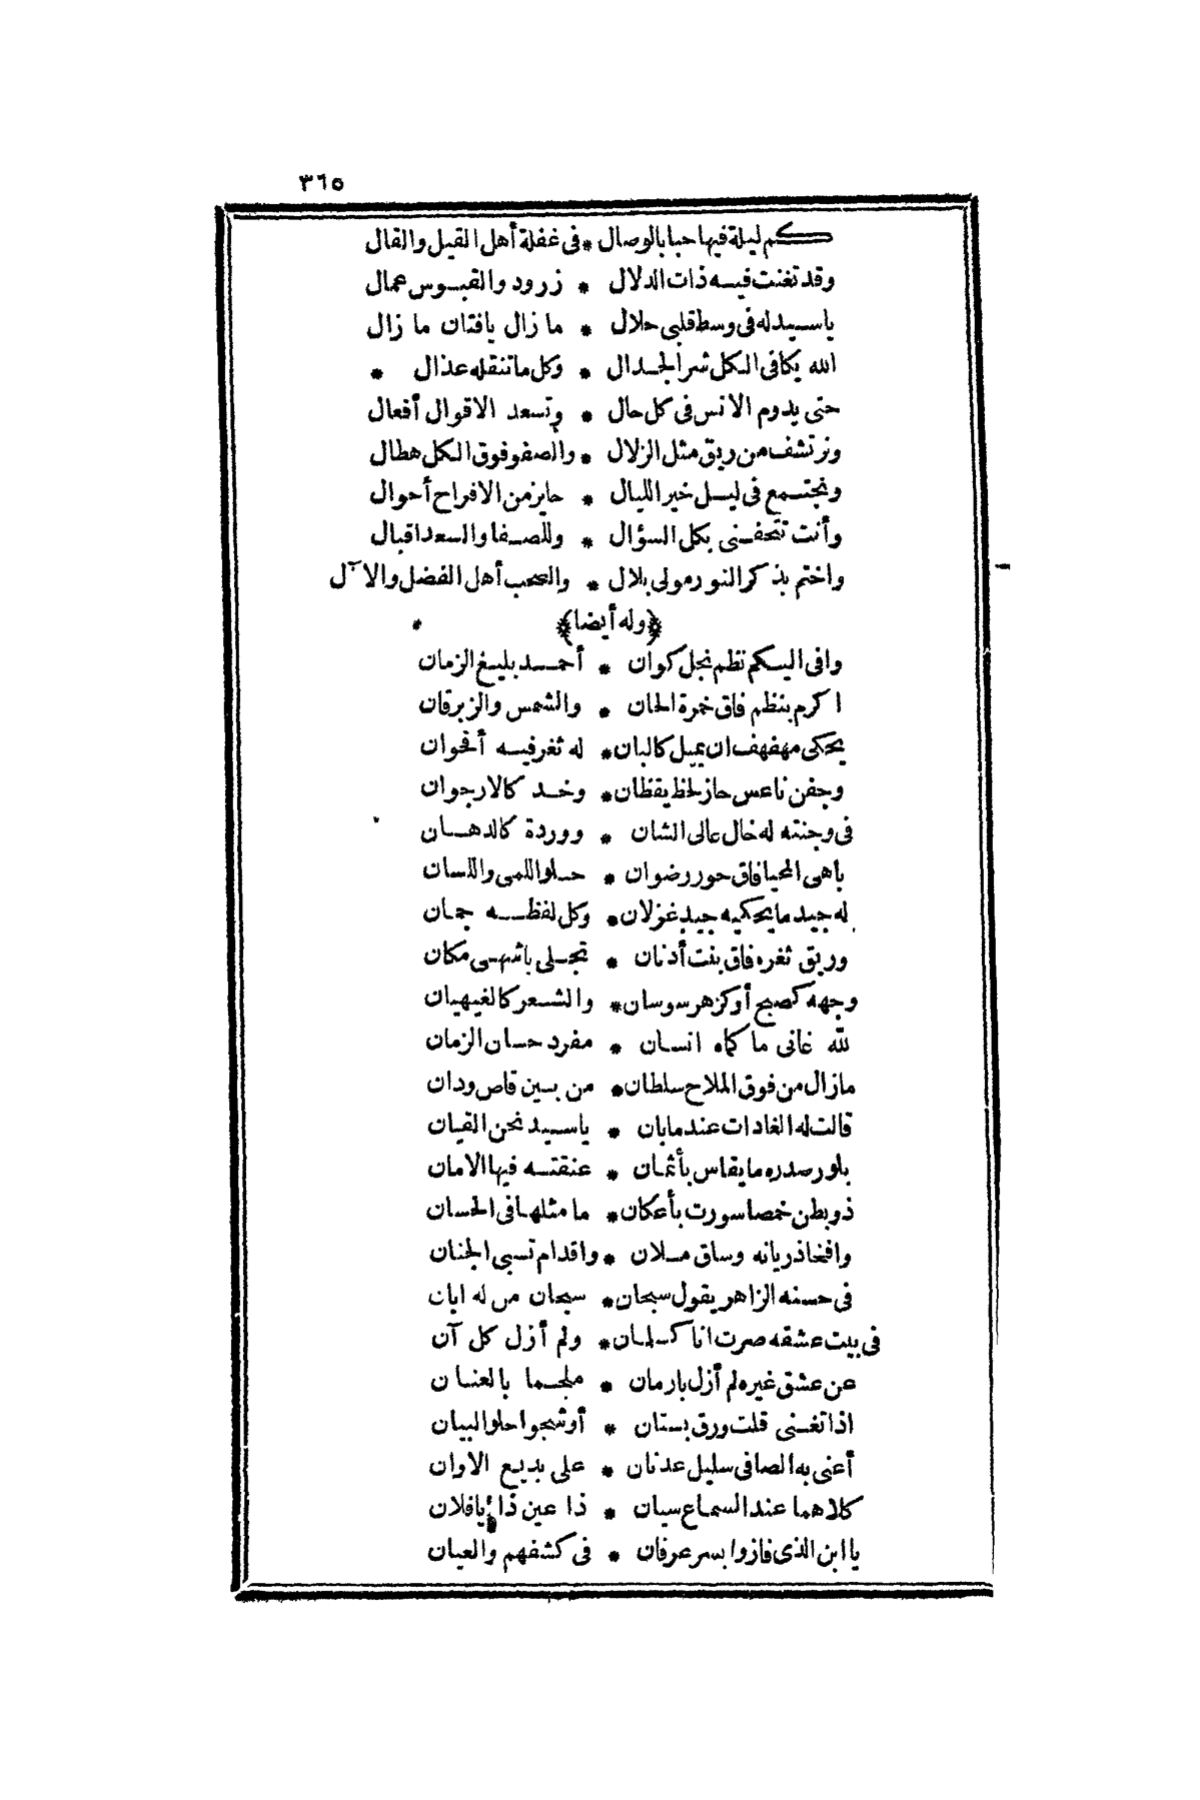 ٣٦٥
كم ليلة فيها حبا بالوصال * فى غفلة أهل القيل والقال
وقد تغنت فيه ذات الدلال * زرود والقبوس عمال
ياسيد له فى وسط قلبى حلال * ما زال يافتان ما زال
الله يكافى الكل شر الجدال * وكل ما تنقله عذال *
حتى يدوم الانس فى كل حال * وتسعد الاقوال أفعال
ونرتشف من ريق مثل الزلال * والصفو فوق الكل هطال
ونجتمع فى ليل خير الليال * حايز من الافراح أحوال
وأنت تتحفنى بكل السؤال * وللصفا والسعد اقبال
واختم بذكر النور مولى بلال * والصحب أهل الفضل والآل
﴿وله أيضا﴾ *
وافى اليكم نظم نجل كوان * أحمد بليغ الزمان
اكرم بنظم فاق خمرة الحان * والشمس والزبرقان
يحكى مهفهف ان يميل كالبان * له ثغر فيه أقحوان
وجفن ناعس حاز لحظ يقظان * وخد كالارجوان
فى وجنته له خال عالى الشان * ووردة كالدهان
باهى المحيا فاق حور رضوان * حلو اللمى واللسان
له جيد ما يحكيه جيد غزلان * وكل لفظه جمان
وريق ثغره فاق بنت أدنان * تجلى باشهى مكان
وجهه كصبح أو كزهر سوسان * والشعر كالغيهبان
لله غانى ما كماه انسان * مفرد حسان الزمان
مازال من فوق الملاح سلطان * من بين قاص ودان
قالت له الغادات عند ما بان * ياسيد نحن القيان
بلور صدره ما يقاس بأثمان * عنقته فيها الامان
ذو بطن خمصا سورت بأعكان * ما مثلها فى الحسان
وافخاذ ريانه وساق ملان * واقدام تسبى الجنان
فى حسنه الزاهر يقول سبحان * سبحان من له ابان
فى بيت عشقه صرت انا كسلمان * ولم أزل كل آن
عن عشق غيره لم أزل بارمان * ملجما بالعنان
اذا تغنى قلت ورق بستان * أو شجوا حلو البيان
أعنى به الصافى سليل عدنان * على بديع الاوان
كلاهما عند السماع سيان * ذا عين ذا يا فلان
يا ابن الذى فازوا بسر عرفان * فى كشفهم والعيان